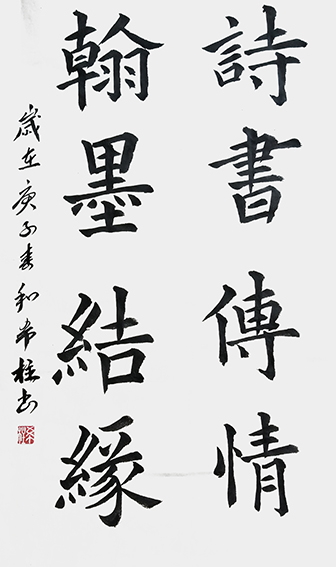 詩書傳情
翰墨結緣
歲在庚子春和布柱书